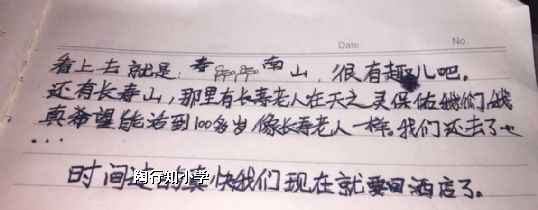 Date No.
看上去就是：寿 南山，很有趣儿吧。
还有长寿山，那里有长寿老人在天之灵保佑我们，我
真希望能活到100多岁像长寿老人一样。我们还去了
...
时间过的真快我们现在就要回酒店了。
陶行知小学